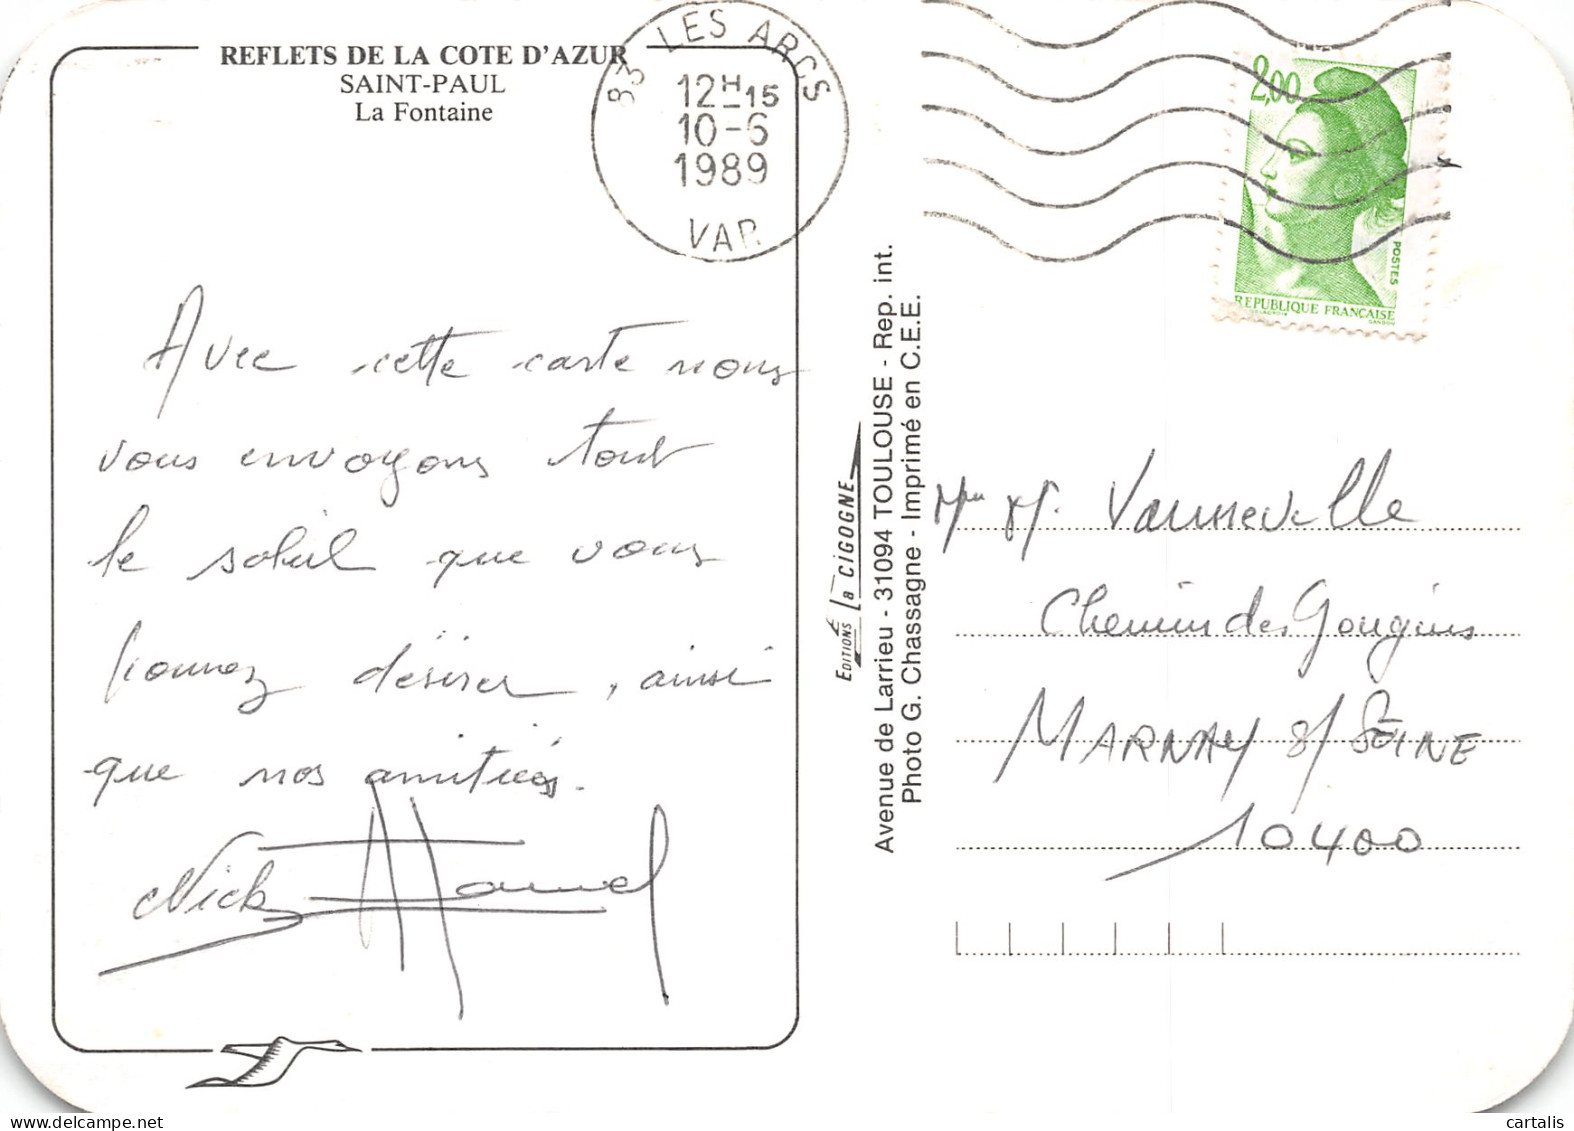 REFLETS DE LA COTE D'AZUR
SAINT-PAUL
La Fontaine
83 LES ARCS
12H15
10-6
1989
VAR
2,00
POSTES
REPUBLIQUE FRANÇAISE
Avec cette carte nous
vous envoyons tout
le soleil que vous
pouvez désirer, ainsi
que nos amitiés.
Nick
EDITIONS la CIGOGNE
Avenue de Larrieu - 31094 TOULOUSE - Rep. int.
Photo G. Chassagne - Imprimé en C.E.E.
Vanneville
Chemin des Gougins
MARNAY s/ SEINE
10400
cartalis
delcampe.net